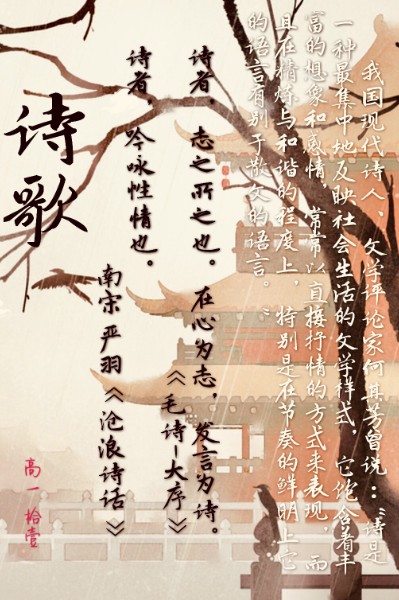 我国现代诗人、文学评论家何其芳曾说:“诗是
一种最集中地反映社会生活的文学样式,它饱含着丰
富的想象和感情,常常以直接抒情的方式来表现,而
且在精炼与和谐的程度上,特别是在节奏的鲜明上,它
的语言有别于散文的语言。”
诗者,志之所之也。在心为志,发言为诗。
《毛诗-大序》
诗者,吟咏性情也。
南宋 严羽《沧浪诗话》
诗歌
高一 拾壹